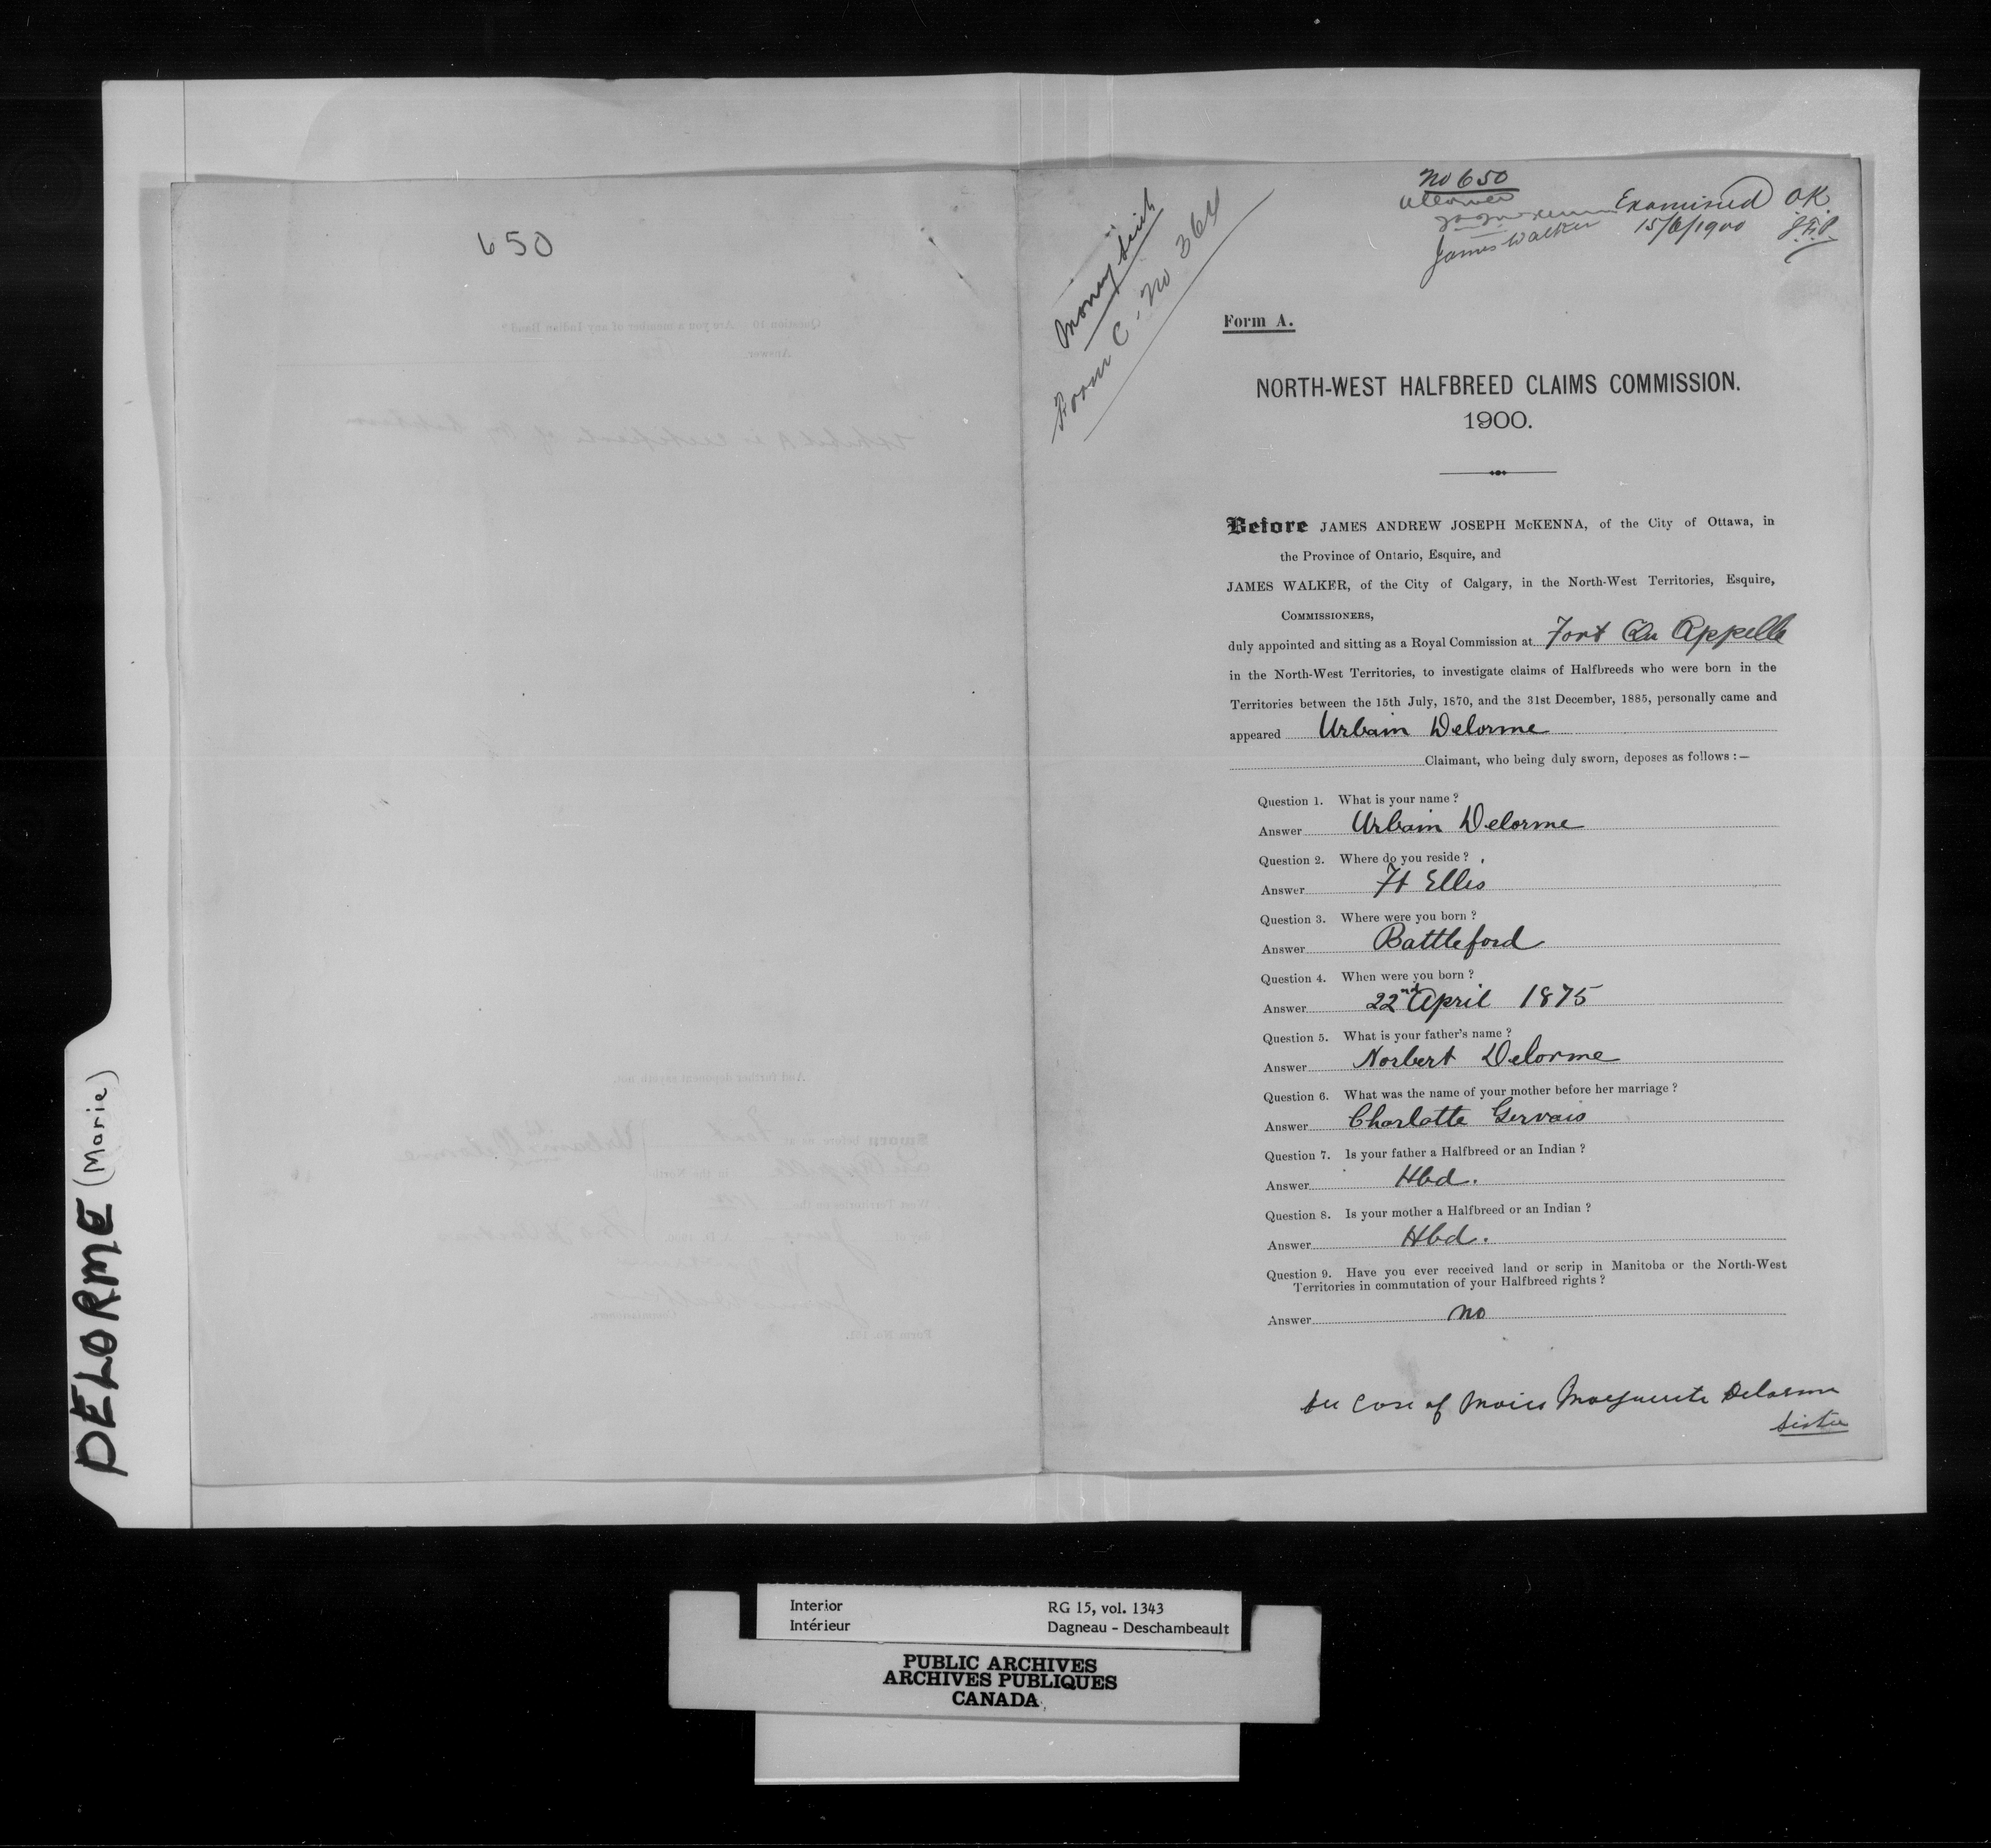 650
DELORME (Marie)
Money Scrip
Form C. No 364
No 650
Allowed
James Walker
Examined OK
15/6/1900
Form A.
NORTH-WEST HALFBREED CLAIMS COMMISSION.
1900.
Before JAMES ANDREW JOSEPH McKENNA, of the City of Ottawa, in
the Province of Ontario, Esquire, and
JAMES WALKER, of the City of Calgary, in the North-West Territories, Esquire,
COMMISSIONERS,
duly appointed and sitting as a Royal Commission at Fort Qu Appelle
in the North-West Territories, to investigate claims of Halfbreeds who were born in the
Territories between the 15th July, 1870, and the 31st December, 1885, personally came and
appeared Urbain Delorme
Claimant, who being duly sworn, deposes as follows :—
Question 1. What is your name ?
Answer Urbain Delorme
Question 2. Where do you reside ?
Answer Ft Ellis
Question 3. Where were you born ?
Answer Battleford
Question 4. When were you born ?
Answer 22nd April 1875
Question 5. What is your father's name ?
Answer Norbert Delorme
Question 6. What was the name of your mother before her marriage ?
Answer Charlotte Gervais
Question 7. Is your father a Halfbreed or an Indian ?
Answer Hbd.
Question 8. Is your mother a Halfbreed or an Indian ?
Answer Hbd.
Question 9. Have you ever received land or scrip in Manitoba or the North-West
Territories in commutation of your Halfbreed rights ?
Answer no
See Case of Marie Marguerite Delorme
Sister
Interior RG 15, vol. 1343
Intérieur Dagneau - Deschambeault
PUBLIC ARCHIVES
ARCHIVES PUBLIQUES
CANADA